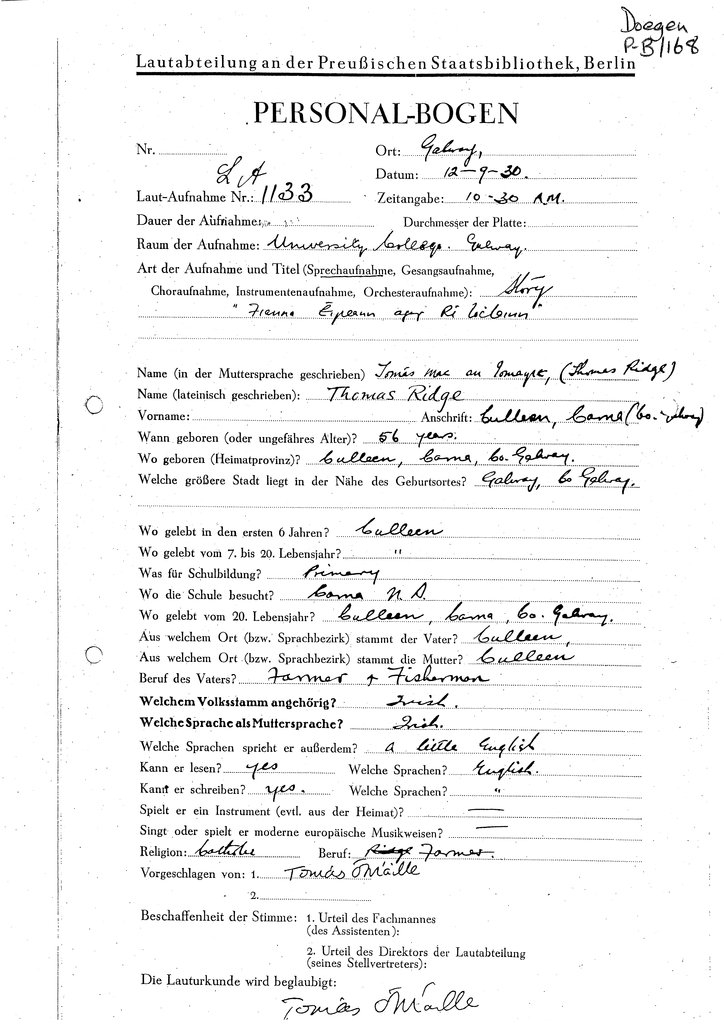 Doegen
P-B/168
Lautabteilung an der Preußischen Staatsbibliothek, Berlin
PERSONAL-BOGEN
Nr. Ort: Galway,
Datum: 12-9-30.
Laut-Aufnahme Nr.: LA 1133 Zeitangabe: 10-30 A.M.
Dauer der Aufnahme: Durchmesser der Platte:
Raum der Aufnahme: University College. Galway.
Art der Aufnahme und Titel (Sprechaufnahme, Gesangsaufnahme,
Choraufnahme, Instrumentenaufnahme, Orchesteraufnahme): Story
" Fianna Éireann agus Rí
Name (in der Muttersprache geschrieben) Tomás mac an Iomayre, (Thomas Ridge)
Name (lateinisch geschrieben): Thomas Ridge
Vorname: Anschrift: Culleen, Carna (Co. Galway)
Wann geboren (oder ungefähres Alter)? 56 years.
Wo geboren (Heimatprovinz)? Culleen, Carna, Co. Galway.
Welche größere Stadt liegt in der Nähe des Geburtsortes? Galway, Co Galway.
Wo gelebt in den ersten 6 Jahren? Culleen
Wo gelebt vom 7. bis 20. Lebensjahr? "
Was für Schulbildung? Primary
Wo die Schule besucht? Carna N.S.
Wo gelebt vom 20. Lebensjahr? Culleen, Carna, Co. Galway.
Aus welchem Ort (bzw. Sprachbezirk) stammt der Vater? Culleen,
Aus welchem Ort (bzw. Sprachbezirk) stammt die Mutter? Culleen
Beruf des Vaters? Farmer + Fisherman
Welchem Volksstamm angehörig? Irish.
Welche Sprache als Muttersprache? Irish.
Welche Sprachen spricht er außerdem? a little English
Kann er lesen? yes Welche Sprachen? English.
Kann er schreiben? yes. Welche Sprachen? "
Spielt er ein Instrument (evtl. aus der Heimat)? —
Singt oder spielt er moderne europäische Musikweisen? —
Religion: Catholic Beruf: Ridge Farmer.
Vorgeschlagen von: 1. Tomás Ó Máille
2.
Beschaffenheit der Stimme: 1. Urteil des Fachmannes
(des Assistenten):
2. Urteil des Direktors der Lautabteilung
(seines Stellvertreters):
Die Lauturkunde wird beglaubigt:
Tomás Ó Máille